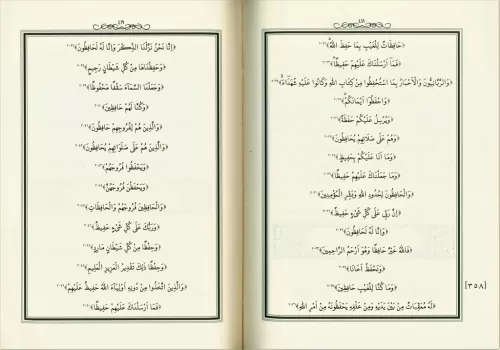 ﴿حَافِظَاتٌ لِلْغَيْبِ بِمَا حَفِظَ اللَّهُ﴾
﴿فَمَا أَرْسَلْنَاكَ عَلَيْهِمْ حَفِيظًا﴾
﴿وَالرَّبَّانِيُّونَ وَالْأَحْبَارُ بِمَا اسْتُحْفِظُوا مِنْ كِتَابِ اللَّهِ وَكَانُوا عَلَيْهِ شُهَدَاءَ﴾
﴿وَاحْفَظُوا أَيْمَانَكُمْ﴾
﴿وَيُرْسِلُ عَلَيْكُمْ حَفَظَةً﴾
﴿وَهُمْ عَلَى صَلَاتِهِمْ يُحَافِظُونَ﴾
﴿وَمَا أَنَا عَلَيْكُمْ بِحَفِيظٍ﴾
﴿وَمَا جَعَلْنَاكَ عَلَيْهِمْ حَفِيظًا﴾
﴿وَالْحَافِظُونَ لِحُدُودِ اللَّهِ وَبَشِّرِ الْمُؤْمِنِينَ﴾
﴿إِنَّ رَبِّي عَلَى كُلِّ شَيْءٍ حَفِيظٌ﴾
﴿وَإِنَّا لَهُ لَحَافِظُونَ﴾
﴿فَاللَّهُ خَيْرٌ حَافِظًا وَهُوَ أَرْحَمُ الرَّاحِمِينَ﴾
﴿وَنَحْفَظُ أَخَانَا﴾
﴿وَمَا كُنَّا لِلْغَيْبِ حَافِظِينَ﴾
[٣٥٨]
﴿لَهُ مُعَقِّبَاتٌ مِنْ بَيْنِ يَدَيْهِ وَمِنْ خَلْفِهِ يَحْفَظُونَهُ مِنْ أَمْرِ اللَّهِ﴾
٤١٩
﴿إِنَّا نَحْنُ نَزَّلْنَا الذِّكْرَ وَإِنَّا لَهُ لَحَافِظُونَ﴾
﴿وَحَفِظْنَاهَا مِنْ كُلِّ شَيْطَانٍ رَجِيمٍ﴾
﴿وَجَعَلْنَا السَّمَاءَ سَقْفًا مَحْفُوظًا﴾
﴿وَكُنَّا لَهُمْ حَافِظِينَ﴾
﴿وَالَّذِينَ هُمْ لِفُرُوجِهِمْ حَافِظُونَ﴾
﴿وَالَّذِينَ هُمْ عَلَى صَلَوَاتِهِمْ يُحَافِظُونَ﴾
﴿وَيَحْفَظُوا فُرُوجَهُمْ﴾
﴿وَيَحْفَظْنَ فُرُوجَهُنَّ﴾
﴿وَالْحَافِظِينَ فُرُوجَهُمْ وَالْحَافِظَاتِ﴾
﴿وَرَبُّكَ عَلَى كُلِّ شَيْءٍ حَفِيظٌ﴾
﴿وَحِفْظًا مِنْ كُلِّ شَيْطَانٍ مَارِدٍ﴾
﴿وَحِفْظًا ذَلِكَ تَقْدِيرُ الْعَزِيزِ الْعَلِيمِ﴾
﴿وَالَّذِينَ اتَّخَذُوا مِنْ دُونِهِ أَوْلِيَاءَ اللَّهُ حَفِيظٌ عَلَيْهِمْ﴾
﴿فَمَا أَرْسَلْنَاكَ عَلَيْهِمْ حَفِيظًا﴾